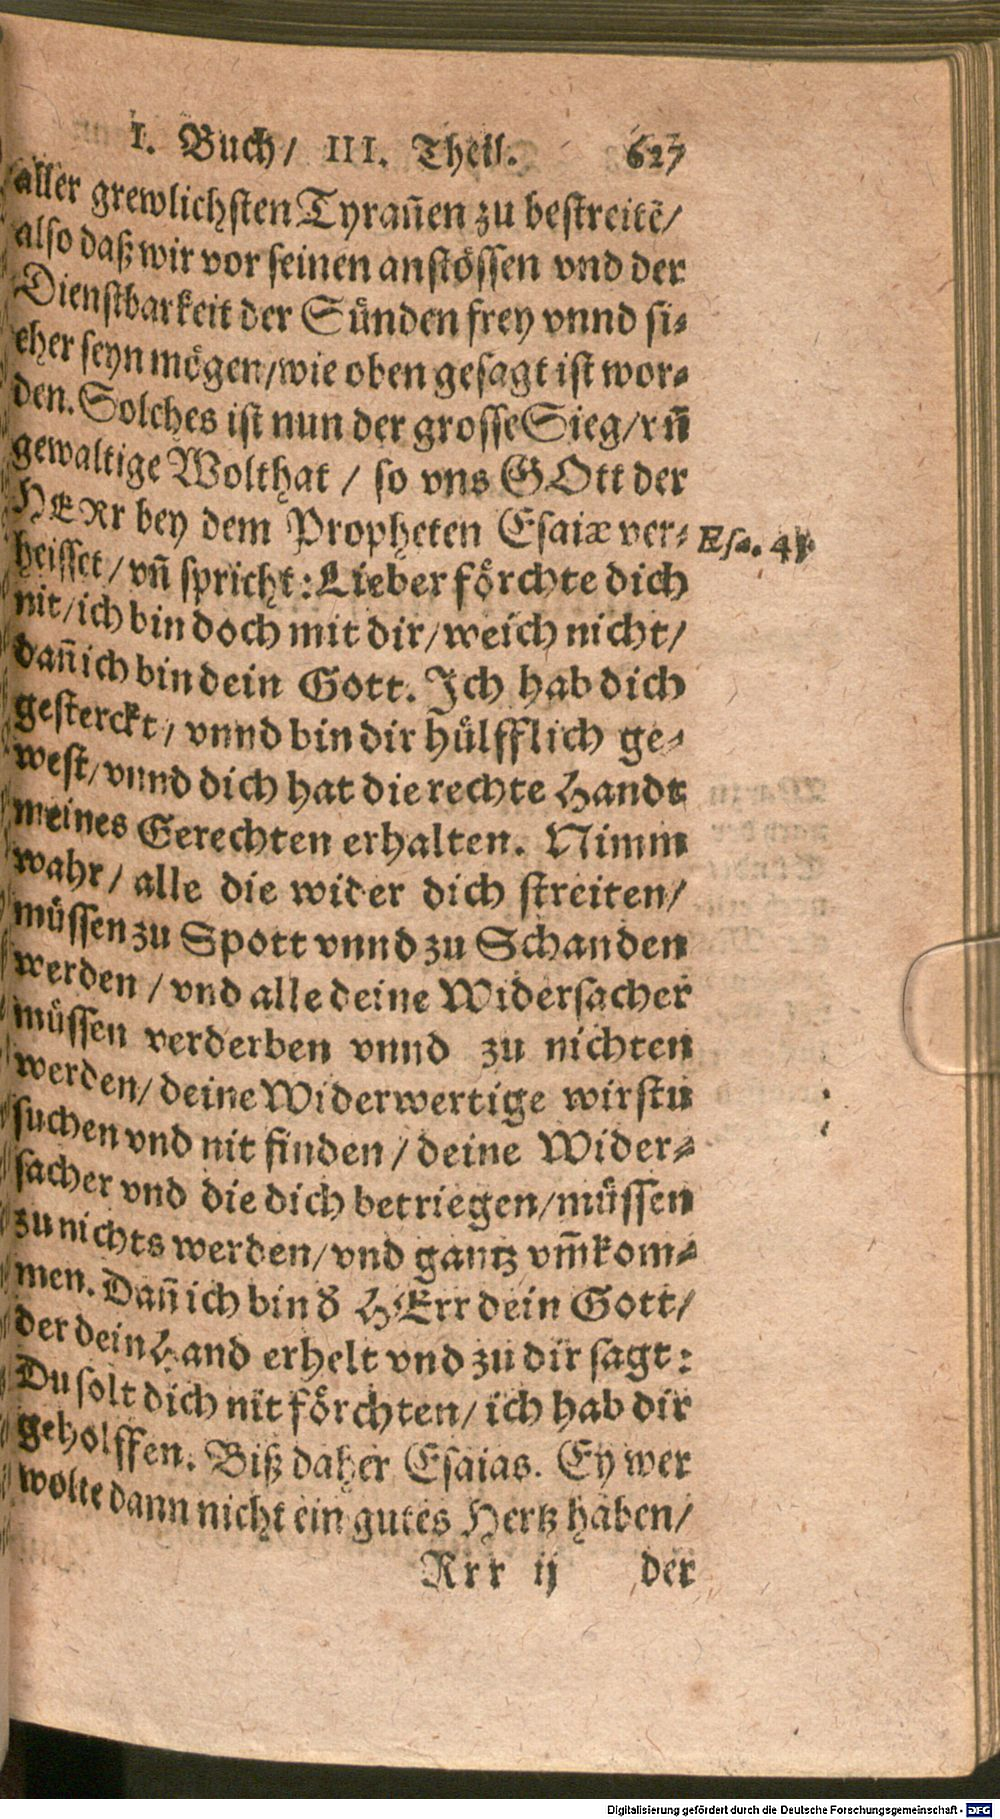 I. Buch/ III. Theil. 627
aller grewlichsten Tyrañen zu bestreitē/
also daß wir vor seinen anstössen vnd der
Dienstbarkeit der Sünden frey vnnd si⸗
cher seyn mögen/wie oben gesagt ist wor⸗
den. Solches ist nun der grosse Sieg/vñ
gewaltige Wolthat / so vns GOtt der
HERr bey dem Propheten Esaiæ ver⸗
Esa. 41.
heisset/ vñ spricht: Lieber förchte dich
nit/ich bin doch mit dir/weich nicht/
dañ ich bin dein Gott. Ich hab dich
gesterckt/ vnnd bin dir hülfflich ge⸗
west/vnnd dich hat die rechte Handt
meines Gerechten erhalten. Nimm
wahr/ alle die wider dich streiten/
müssen zu Spott vnnd zu Schanden
werden / vnd alle deine Widersacher
müssen verderben vnnd zu nichten
werden/ deine Widerwertige wirstu
suchen vnd nit finden/ deine Wider⸗
sacher vnd die dich betriegen/müssen
zu nichts werden/vnd gantz vm̃kom⸗
men. Dañ ich bin d̕ HErr dein Gott/
der dein Hand erhelt vnd zu dir sagt:
Du solt dich nit förchten/ ich hab dir
geholffen. Biß daher Esaias. Ey wer
wolte dann nicht ein gutes Hertz haben/
Rrr ij der
Digitalisierung gefördert durch die Deutsche Forschungsgemeinschaft - DFG